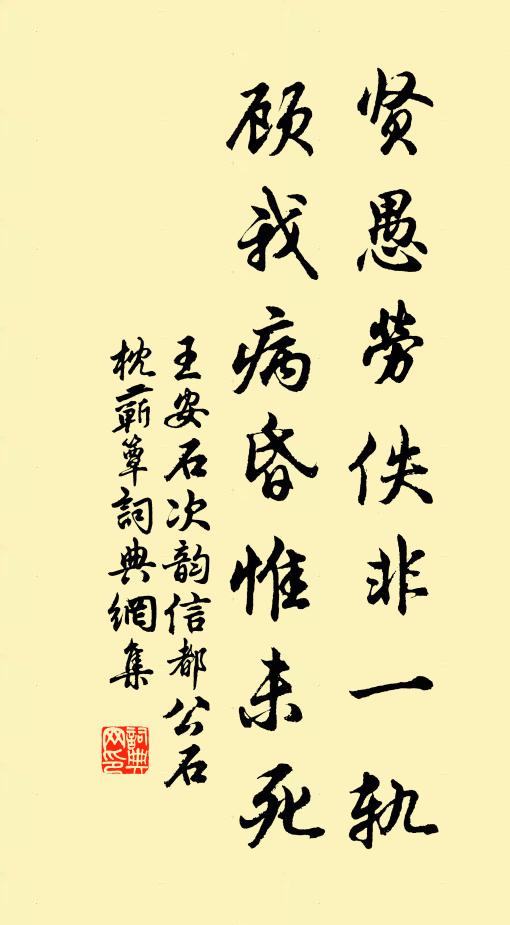 贤愚劳佚非一轨
顾我病昏惟未死
王安石次韵信都公石
枕蕲簟詞典網集
詞典网印